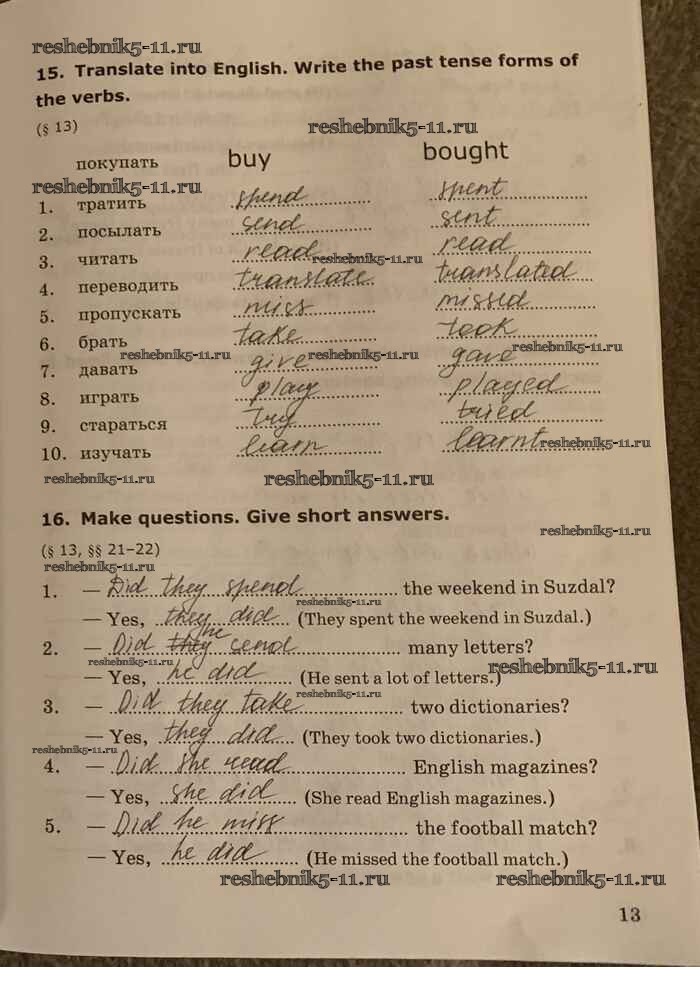 reshebnik5-11.ru
15. Translate into English. Write the past tense forms of
the verbs.
(§ 13)
reshebnik5-11.ru
покупать buy bought
reshebnik5-11.ru
1. тратить spend spent
2. посылать send sent
3. читать read read
reshebnik5-11.ru
4. переводить translate translated
5. пропускать miss missed
6. брать take took
reshebnik5-11.ru reshebnik5-11.ru reshebnik5-11.ru
7. давать give gave
8. играть play played
9. стараться try tried
10. изучать learn learnt
reshebnik5-11.ru
reshebnik5-11.ru reshebnik5-11.ru
16. Make questions. Give short answers.
reshebnik5-11.ru
(§ 13, §§ 21–22)
reshebnik5-11.ru
1. — Did they spend the weekend in Suzdal?
reshebnik5-11.ru
— Yes, they did (They spent the weekend in Suzdal.)
2. — Did they he send many letters?
reshebnik5-11.ru reshebnik5-11.ru
— Yes, he did (He sent a lot of letters.)
reshebnik5-11.ru
3. — Did they take two dictionaries?
— Yes, they did (They took two dictionaries.)
reshebnik5-11.ru
4. — Did she read English magazines?
— Yes, she did (She read English magazines.)
5. — Did he miss the football match?
— Yes, he did (He missed the football match.)
reshebnik5-11.ru reshebnik5-11.ru
13